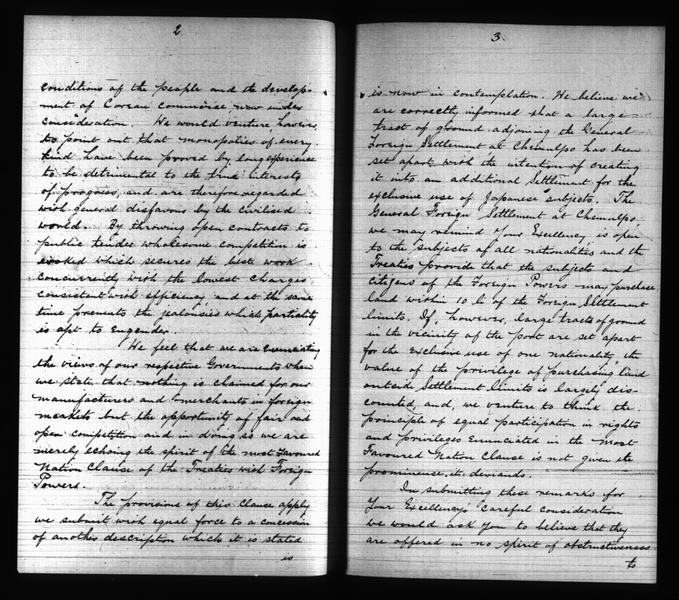 2
conditions of the people and the develop-
ment of Corean commerce now under
consideration. We would venture, however,
to point out that monopolies of every
kind have been proved by long experience
to be detrimental to the true interests
of progress, and are therefore regarded
with general disfavour by the civilised
world. By throwing open contracts to
public tender wholesome competition is
evoked which secures the best work
concurrently with the lowest charges
consistent with efficiency, and at the same
time prevents the jealousies which partiality
is apt to engender.
We feel that we are enunciating
the views of our respective Governments when
we state that nothing is claimed for our
manufacturers and merchants in foreign
markets but the opportunity of fair and
open competition and in doing so we are
merely echoing the spirit of the most Favoured
Nation Clause of the Treaties with Foreign
Powers.
The provisions of this clause apply
we submit with equal force to a concession
of another description which it is stated
is
3.
is now in contemplation. We believe we
are correctly informed that a large
tract of ground adjoining the General
Foreign Settlement at Chemulpo has been
set apart with the intention of creating
it into an additional Settlement for the
exclusive use of Japanese subjects. The
General Foreign Settlement at Chemulpo
we may remind Your Excellency is open
to the subjects of all nationalities and the
Treaties provide that the subjects and
citizens of the Foreign Powers may purchase
land within 10 li of the Foreign Settlement
limits. If, however, large tracts of ground
in the vicinity of the port are set apart
for the exclusive use of one nationality, the
value of the privilege of purchasing land
outside Settlement limits is largely dis-
counted and, we venture to think the
principle of equal participation in rights
and privileges enunciated in the most
Favoured Nation Clause is not given the
prominence it demands.
In submitting these remarks for
Your Excellency's careful consideration
we would ask you to believe that they
are offered in no spirit of obstructiveness
to